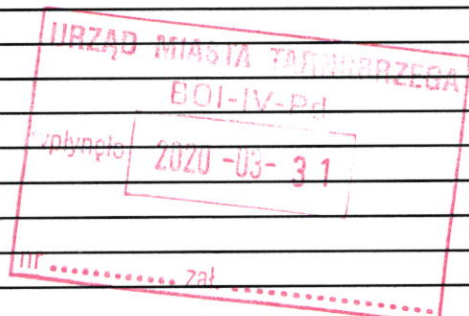 URZĄD MIASTA TARNOBRZEGA
BOI-IV-Pd
wpłynęło 2020 -03- 31
nr ............ zał. ....................